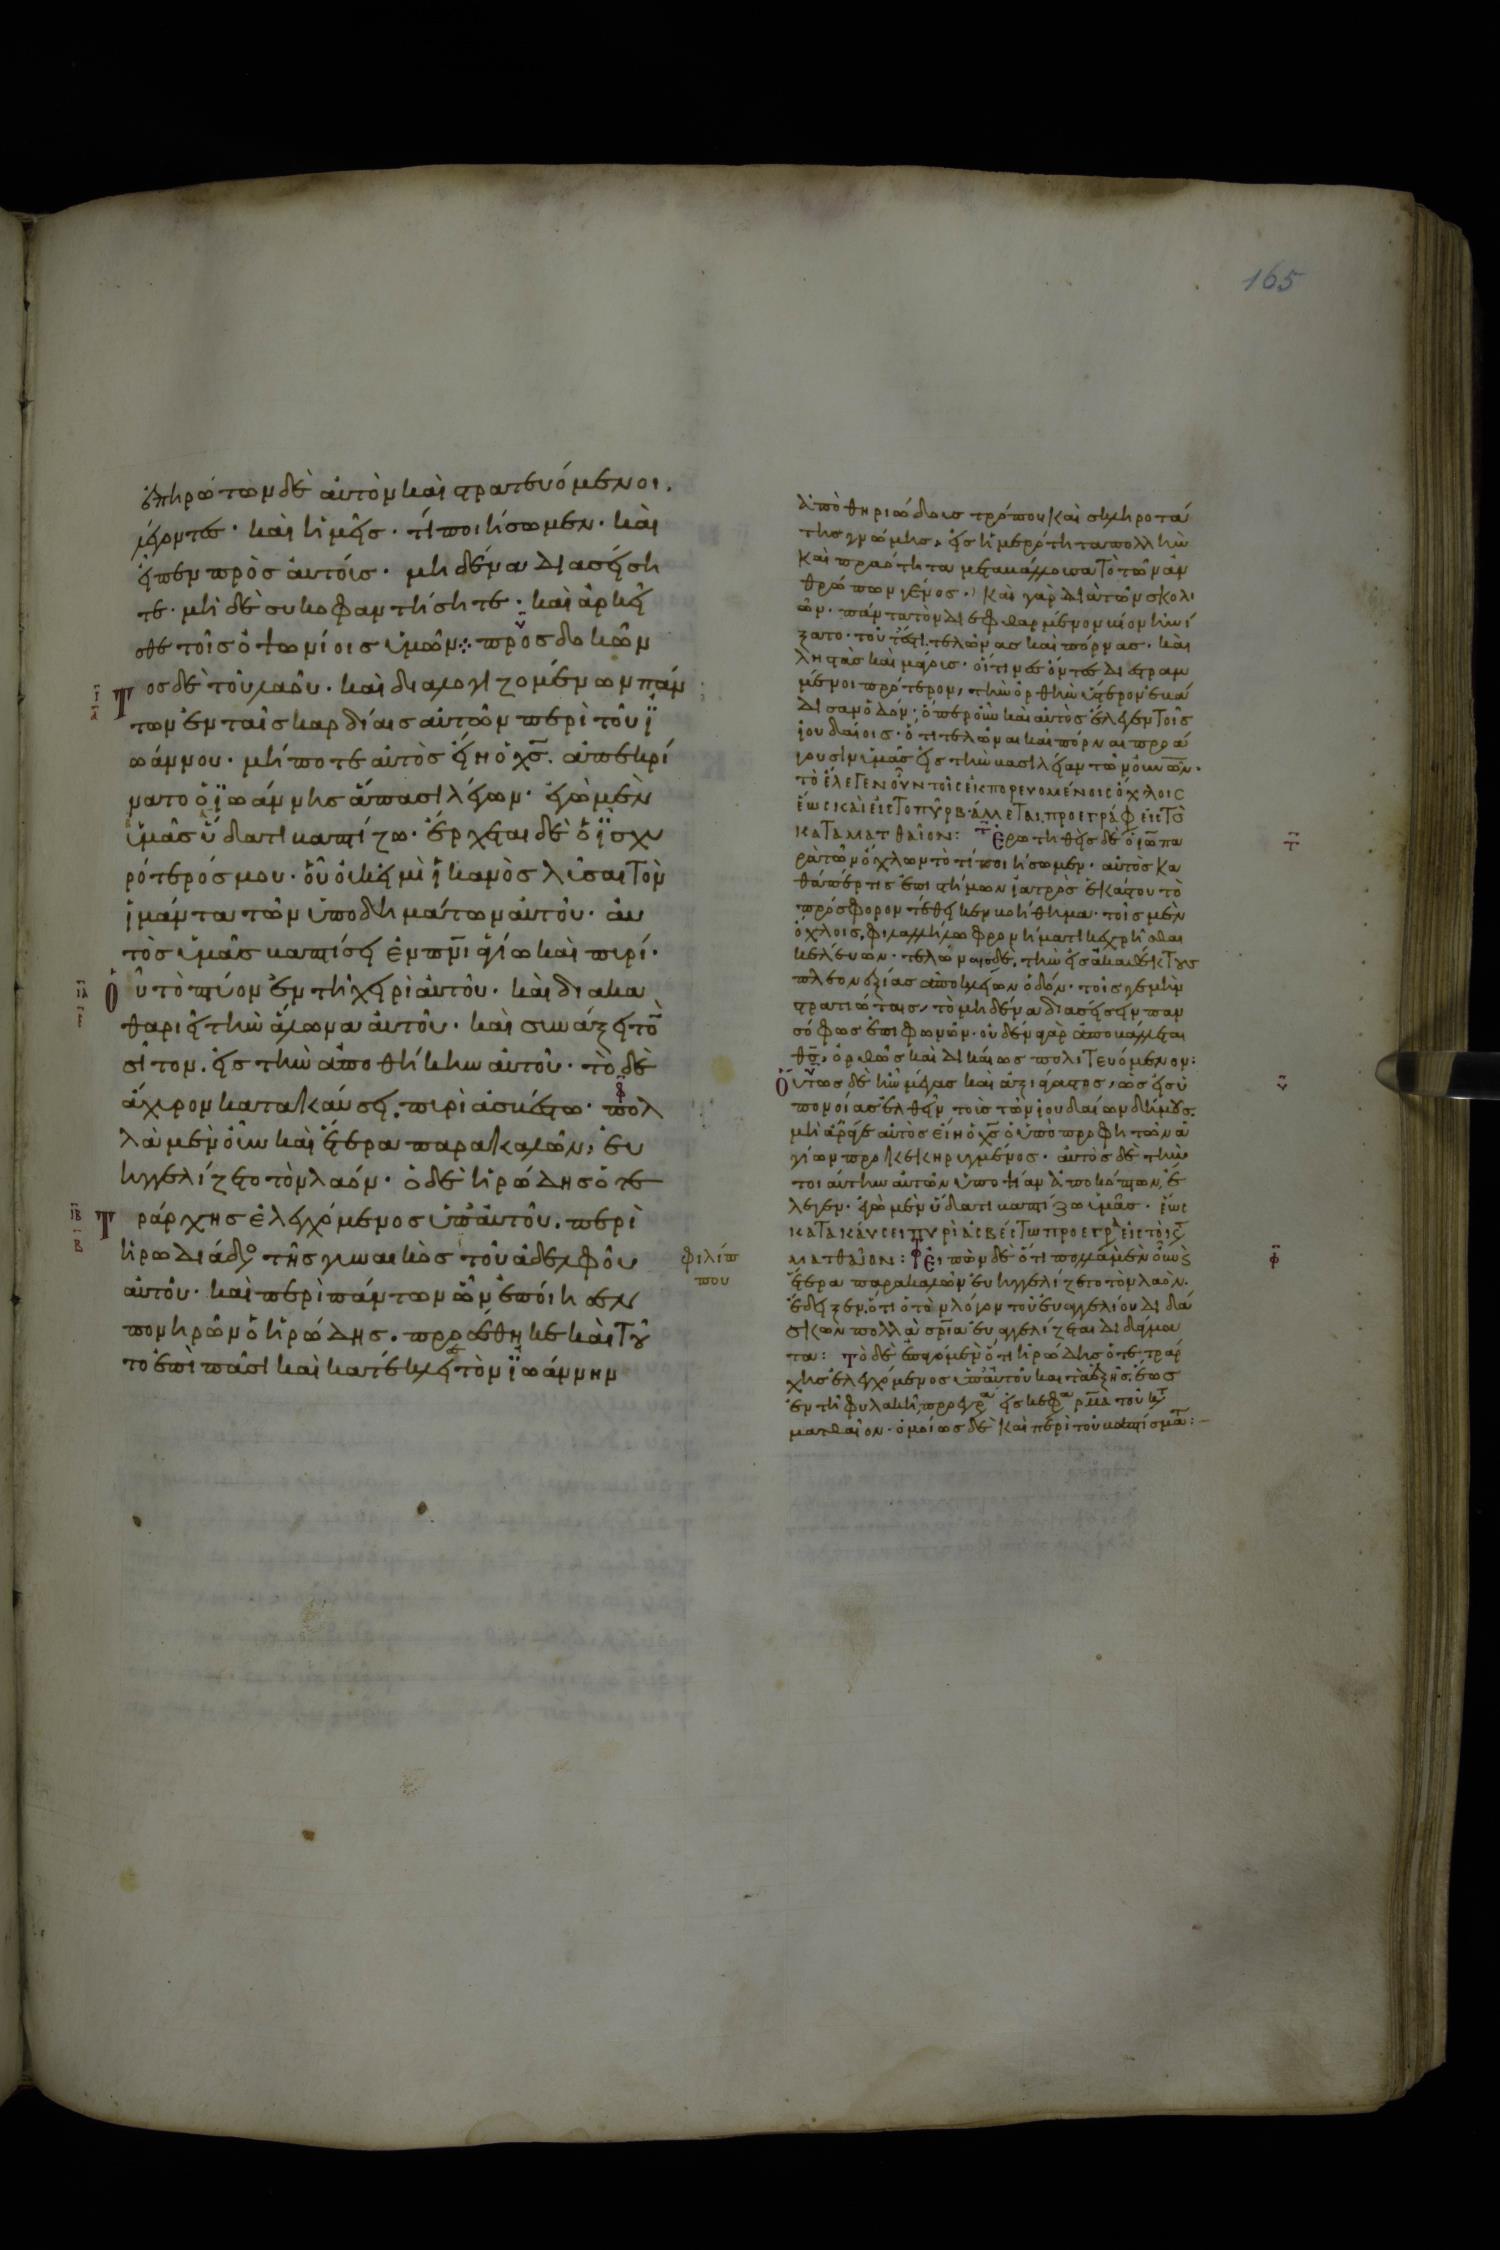 165
ἐπηρώτων δὲ αὐτὸν καὶ στρατευόμενοι.
λέγοντες· καὶ ἡμεῖς· τί ποιήσωμεν· καὶ
εἶπεν πρὸς αὐτοὺς· μηδένα διασείση
τε· μὴ δὲ συκοφαντήσητε· καὶ ἀρκεῖ
σθε τοῖς ὀψωνίοις ὑμῶν· προσδοκῶν
Τ
οσ δὲ τοῦ λαοῦ· καὶ διαλογιζομένων πάν
των ἐν ταῖς καρδίαις αὐτῶν περὶ τοῦ ἰ
ωάννου· μήποτε αὐτὸς εἴη ὁ χς̅. ἀπεκρί
νατο ὁ ἰωάννης ἅπασι λέγων· ἐγὼ μὲν
ὑμᾶς ὕδατι βαπτίζω· ἔρχεται δὲ ὁ ἰσχυ
ρότερός μου· οὗ οὐκ εἰμὶ ἱκανὸς λῦσαι τὸν
ἱμάντα τῶν ὑποδημάτων αὐτοῦ· αὐ
τὸς ὑμᾶς βαπτίσει ἐν πνι̅ ἁγίω καὶ πυρί·
Ο
ὗ τὸ πτύον ἐν τῇ χειρὶ αὐτοῦ· καὶ διακα
θαριεῖ τὴν ἅλωνα αὐτοῦ· καὶ συνάξει τὸ
σῖτον. εἰς τὴν ἀποθήκην αὐτοῦ· τὸ δὲ
ἄχυρον κατακαύσει. πυρὶ ἀσβέστω· πολ
λὰ μὲν οὖν καὶ ἕτερα παρακαλῶν, εὐ
ηγγελίζετο τὸν λαόν· ὁ δὲ ἡρώδης ὁ τε
Τ
ράρχης ἐλεγχόμενος ὑπ' αὐτοῦ. περὶ
ἡρωδιάδο τῆς γυναικὸς τοῦ ἀδελφοῦ
φιλίπ
που
αὐτοῦ· καὶ περὶ πάντων ὧν ἐποίησεν
πονηρῶν ὁ ἡρώδης. προσέθηκε καὶ τοῦ
το ἐπὶ πᾶσι καὶ κατέκλεισε τὸν ἰωάννην
ἀπὸ θηριώδους τρόπου καὶ σκληροτά
της γνώμης, εἰς ἡμερότητα πολλὴν
καὶ πραότητα μεταβάλλουσα τὸ τῶν ἀν
θρώπων γένος· καὶ γὰρ διὰ τῶν σκολι
ῶν· πάντα τὸν διεφθαρμένον βίον ἠνί
ξατο· τουτέστι τελώνας καὶ πόρνας· καὶ
ληστὰς καὶ μάγους· οἵτινες ὄντες διεστραμ
μένοι πρότερον, τὴν ὀρθὴν ὕστερον ἐβά
δισαν ὁδόν· ὅπερ οὖν καὶ αὐτὸς ἔλεγεν τοῖς
ἰουδαίοις· ὅτι τελῶναι καὶ πόρναι προά
γουσιν ὑμᾶς εἰς τὴν βασιλείαν τῶν οὐνῶν·
τὸ ἔλεγεν οὖν τοῖς ἐκπορευομένοις ὄχλοις
ἕως καὶ εἰς τὸ πῦρ βάλλεται. προεγράφ εἰς τὸ
κατὰ ματθαῖον: Ἐρωτηθεὶς δὲ ὁ ἰω πα
ρὰ τῶν ὄχλων τὸ τί ποιήσωμεν· αὐτὸς κα
θάπέρ τις ἐπιστήμων ἰατρὸς ἑκάστου τὸ
πρόσφορον τέθεικεν βοήθημα· τοῖς μὲν
ὄχλοις, φιλαλλήλω φρονήματι κεχρῆσθαι
κελεύων· τελώναις δὲ,
πλεονεξίας ἀποκλείων ὁδόν· τοῖς γε μὴν
στρατιώταις, τὸ μηδένα διασείσειν παν
σόφως ἐπιφωνῶν· οὐδένα γὰρ ἀποβάλλεται
θς̅, ὀρθῶς καὶ δικαίως πολιτευόμενον:
Οὕτως δὲ ἦν μέγας καὶ ἀξιάγαστος, ὡς εἰς ὑ
πονοίας ἐλθεῖν τοὺς τῶν ἰουδαίων δήμους.
μὴ ἄρά γε αὐτὸς εἴη ὁ χς̅ ὁ ὑπὸ προφητῶν ἁ
γίων προκεκηρυγμένος· αὐτὸς δὲ τὴν
τοιαύτην αὐτῶν ὑποψίαν ἀποκόπτων, ἔ
λεγεν· ἐγὼ μὲν ὕδατι βαπτίζω ὑμᾶς· ἕως
κατακαύσει πυρὶ ἀσβέστω προεγρ εἰς τὸ κτ
ματθαῖον: Εἰπὼν δὲ ὅτι πολλὰ μὲν οὖν καὶ
ἕτερα παρακαλῶν εὐηγγελίζετο τὸν λαόν·
ἔδειξεν, ὅτι ὁ τὸν λόγον τοῦ εὐαγγελίου διδά
σκων πολλὰ σρια εὐαγγελίζεται διδάγμα
τα: τὸ δὲ ἑπόμενον ὅτι ἡρώδης ὁ τετράρ
χης ἐλεγχόμενος ὑπ' αὐτοῦ καὶ τὰ ἑξῆς. ἕως
ἐν τῇ φυλακῇ, προεγρα εἰς κεφα ρμα τοῦ κτ
ματθαῖον· ὁμοίως δὲ καὶ περὶ τοῦ βαπτίσματ: